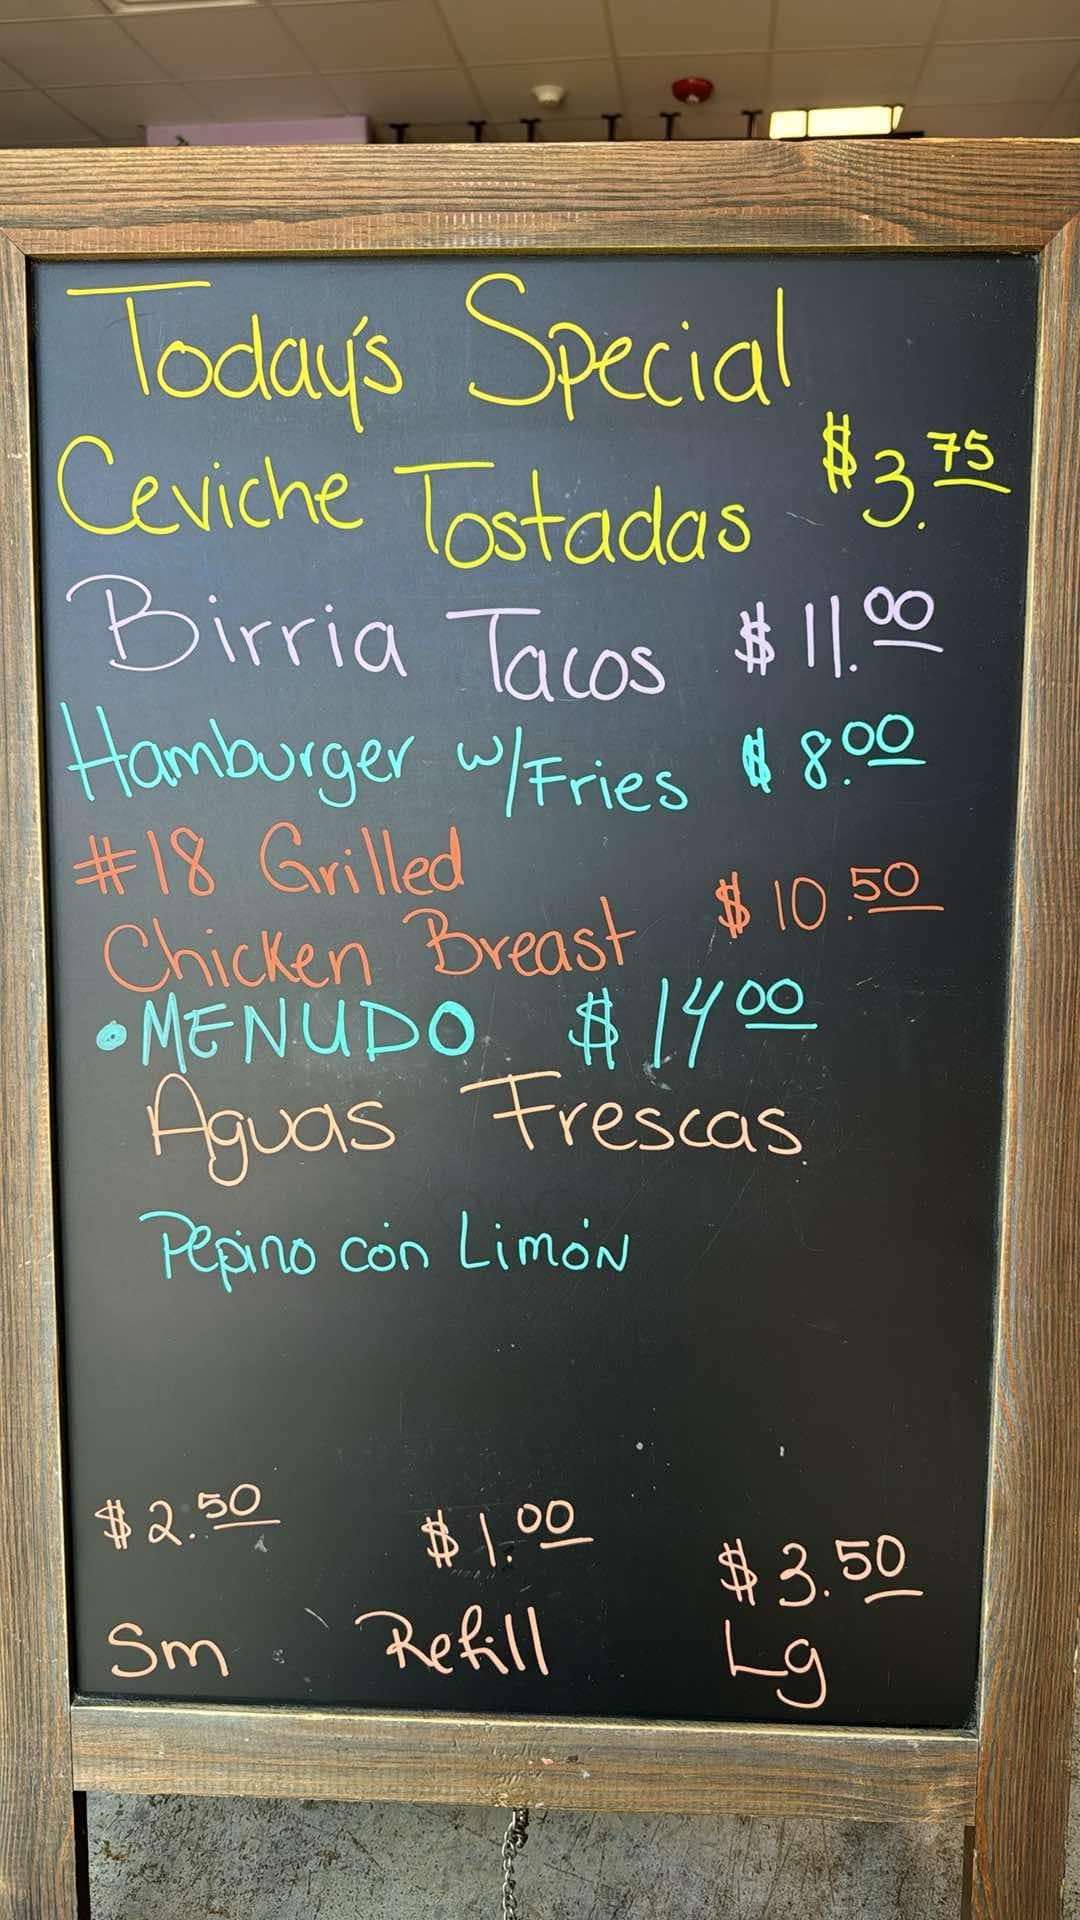 Today's Special
Ceviche Tostadas $3.75
Birria Tacos $11.00
Hamburger w/Fries $8.00
#18 Grilled
Chicken Breast $10.50
• MENUDO $1400
Aguas Frescas
Pepino con Limón
$2.50 $1.00 $3.50
Sm Refill Lg